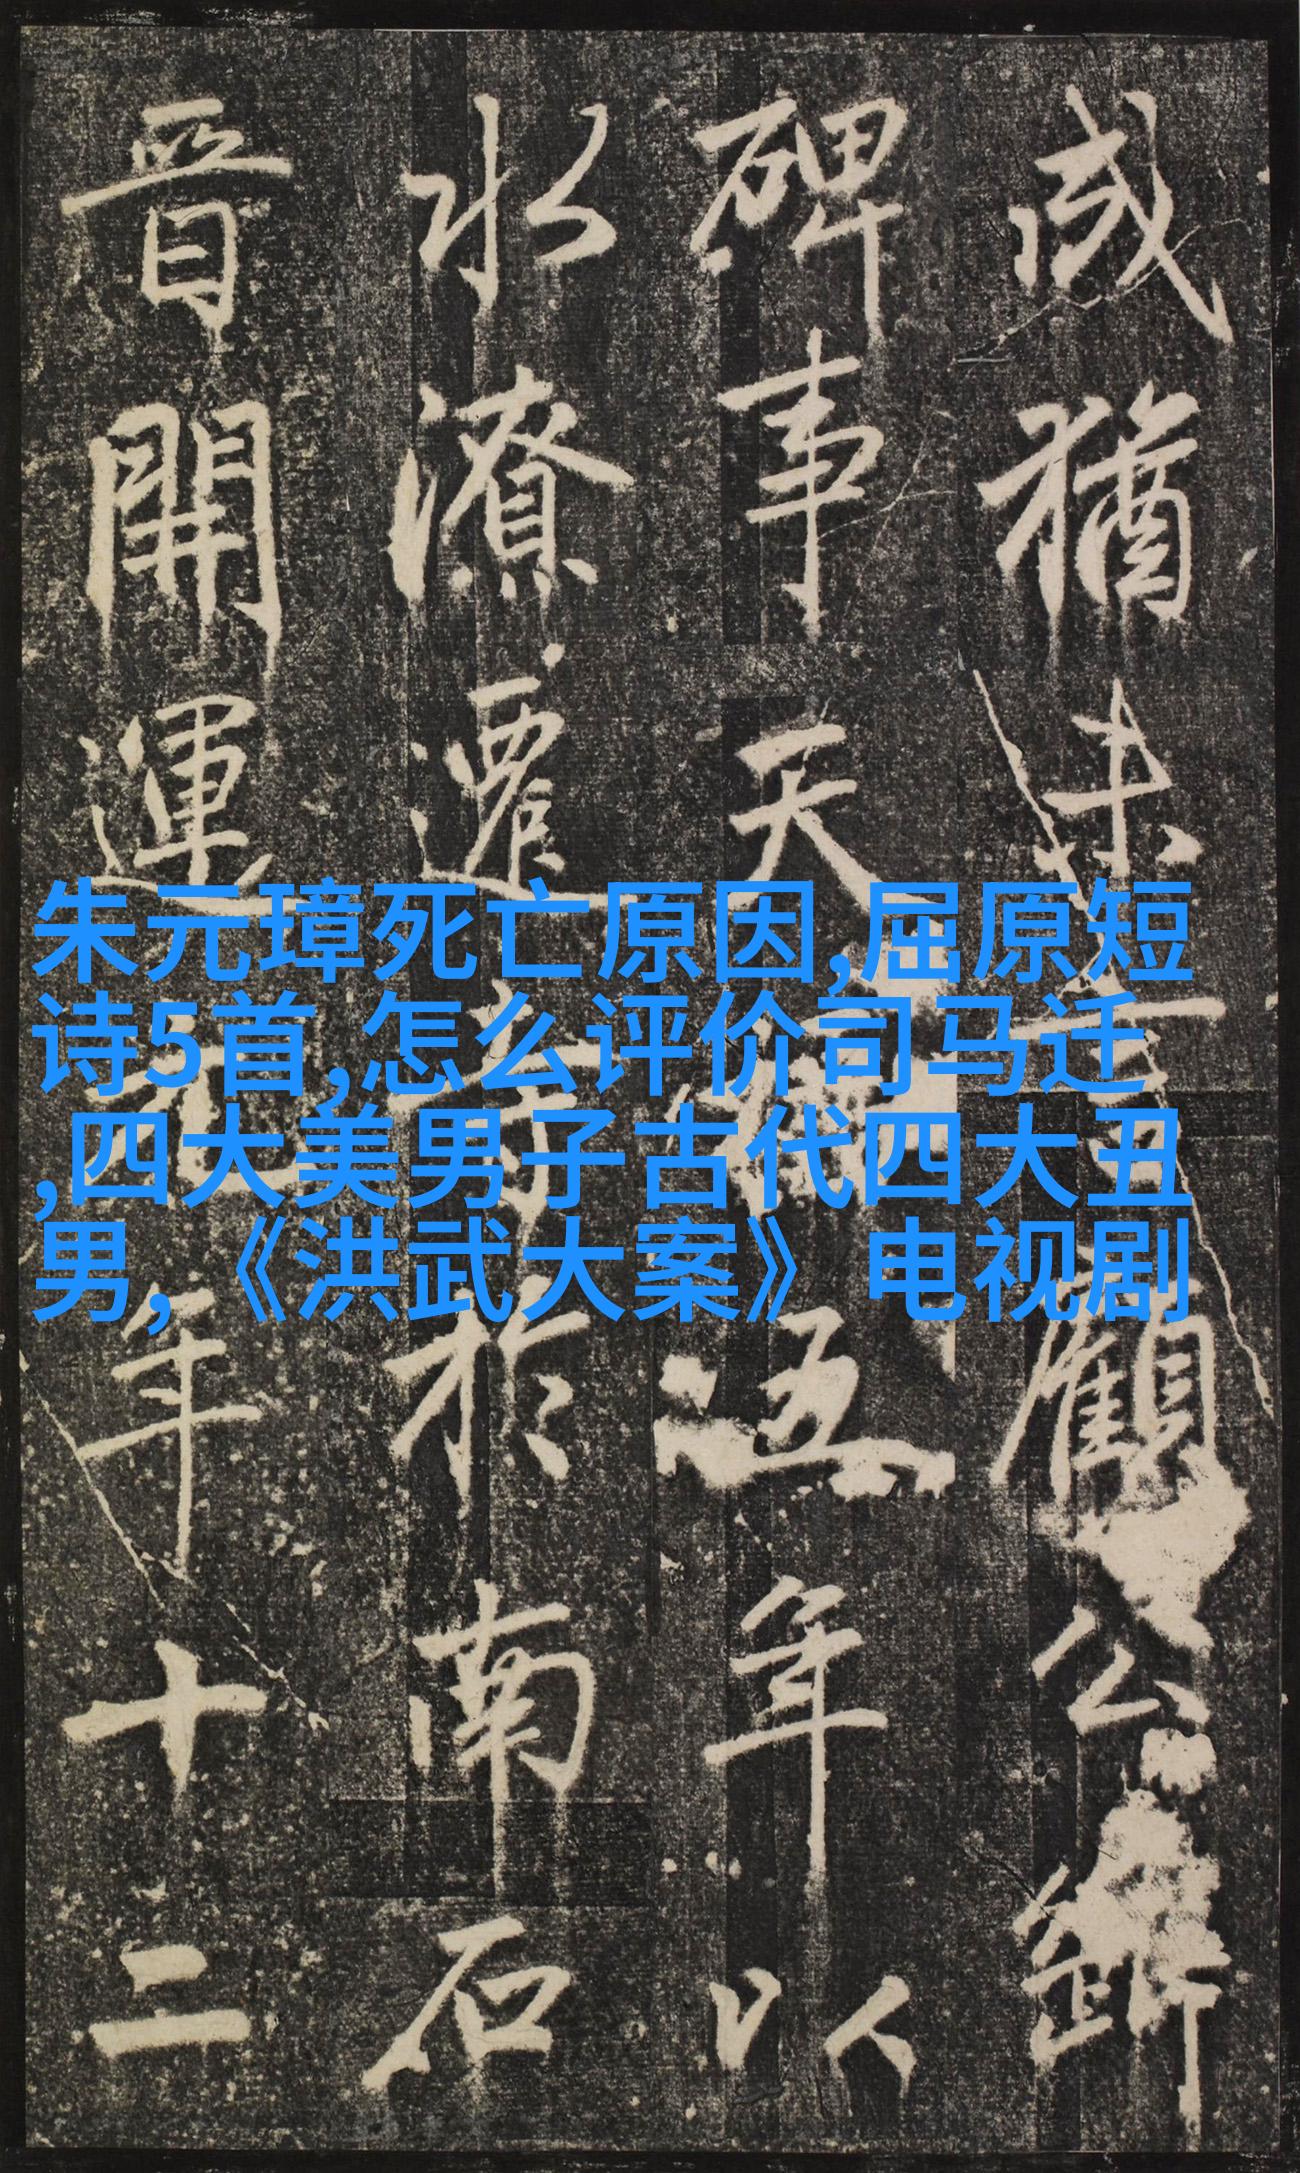 猶未顧公
碑事天五年以
水潦遷寺於南石
晉開運年十二
朱元璋死亡原因,屈原短
诗5首,怎么评价司马迁
,四大美男子古代四大丑
男,《洪武大案》电视剧